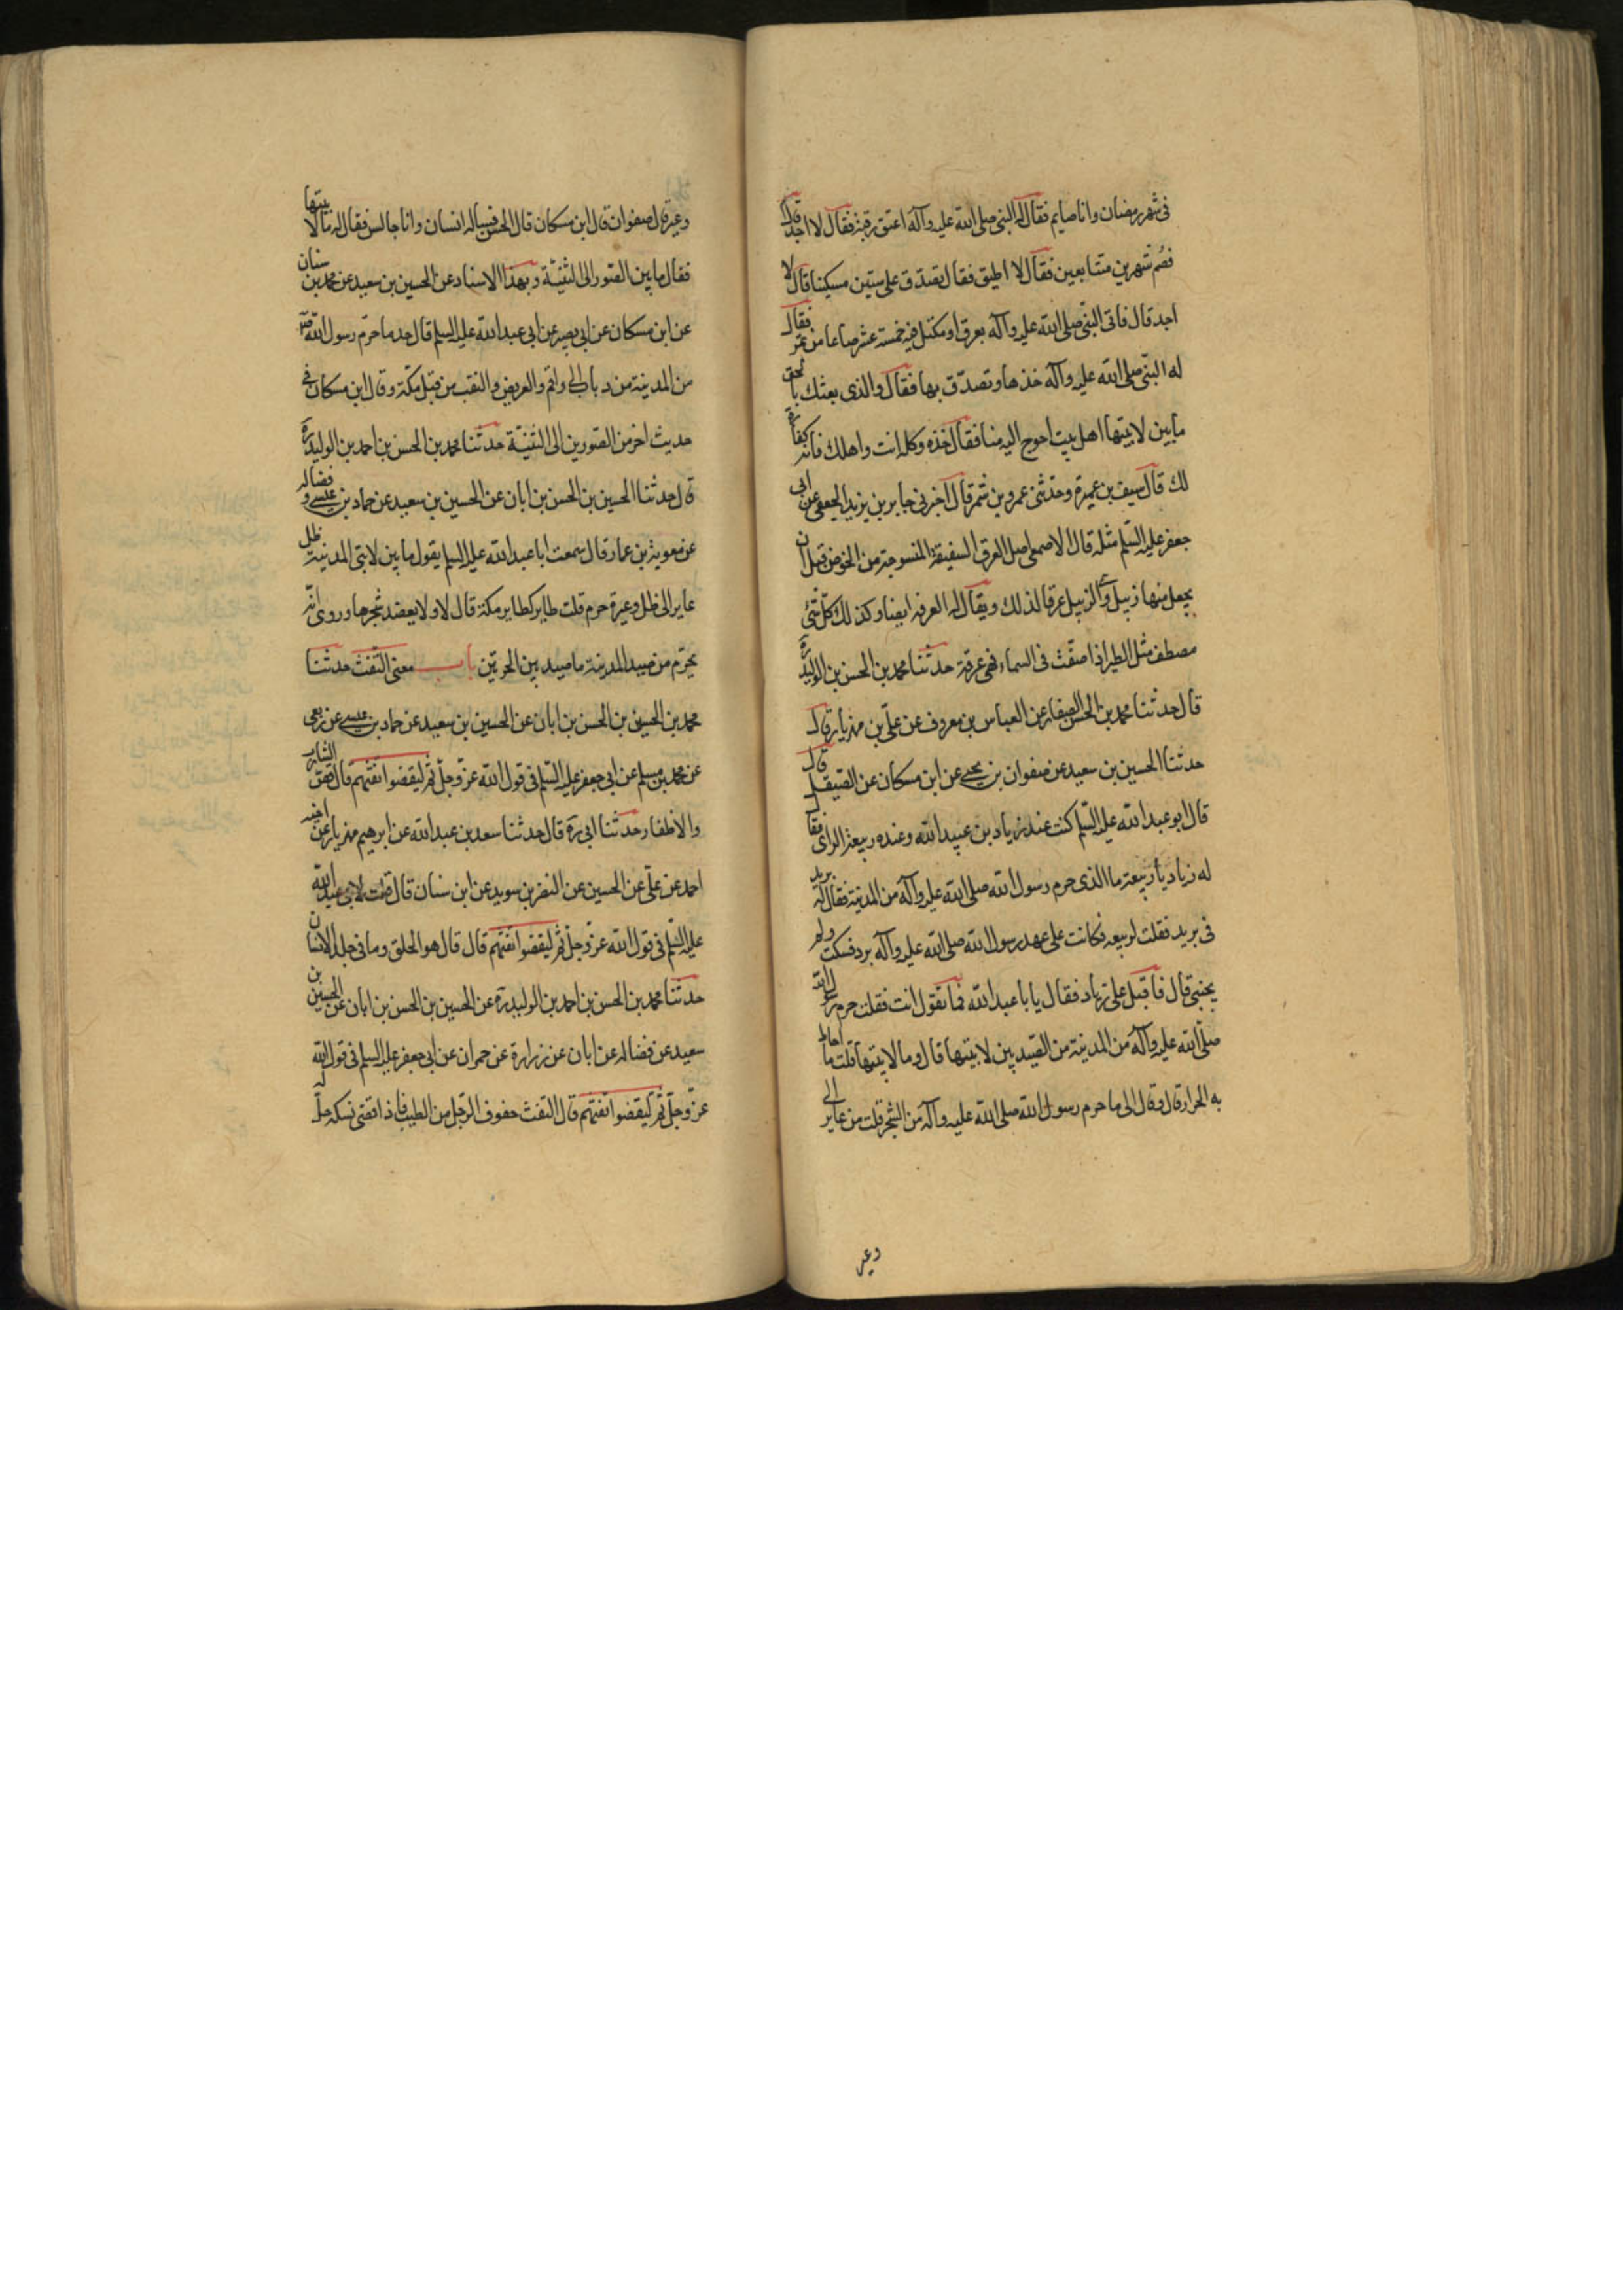 فى شهر رمضان وانا صايم فقال له النبى صلى الله عليه وآله اعتق رقبة فقال لا اجد قال
فصُم شهرين متتابعين فقال لا اطيق فقال تصدّق على ستين مسكينا قال لا
اجد قال فاتى النبى صلى الله عليه وآله بعرق او مكتل فيه خمسة عشر صاعا من تمر فقال
له النبى صلى الله عليه وآله خذها وتصدّق بها فقال والذى بعثك بالحق
ما بين لابتيها اهل بيت احوج اليه منا فقال خذه وكله انت واهلك فانه كفارة
لك قال سيف بن عميرة وحدثنى عمرو بن شمر قال اخبرنى جابر بن يزيد الجعفى عن ابى
جعفر عليه السّلم مثله قال الاصمعى اصل العرق السفيفة المنسوجة من الخوص قبل ان
يجعل منها زبيل والزبيل عرقا لذلك ويقال له العرقه ايضا وكذلك كل شئ
مصطف مثل الطير اذا صفّت فى السماء فهى عرقة حدثنا محمد بن الحسن بن الوليد ره
قال حدثنا محمد بن الحسن الصفار عن العباس بن معروف عن على بن مهزيار قال
حدثنا الحسين بن سعيد عن صفوان بن يحيى عن ابن مسكان عن الصيقل قال
قال ابو عبد الله عليه السّلم كنت عند زياد بن عبيد الله وعنده ربيعة الراى فقال
له زياد يا ربيعة ما الذى حرم رسول الله صلى الله عليه وآله من المدينة فقال له بريد
فى بريد فقلت لربيعه فكانت على عهد رسول الله صلى الله عليه وآله برد فسكت ولم
يجبنى قال فاقبل على زياد فقال يا ابا عبد الله فما تقول انت فقلت حرم رسول الله
صلّى الله عليه وآله من المدينة من الصيد بين لابتيها قال وما لابتيها قلت ما احاط
به الحرار قال وقال لى ما حرم رسول الله صلى الله عليه وآله من الشجر قلت من عاير الى
وعير
وعير قال صفوان قال ابن مسكان قال الحسن فساله انسان وانا جالس فقال له ما لابتيها
فقال ما بين الصورين الى الثنيّة وبهذا الاسناد عن الحسين بن سعيد عن محمد بن سنان
عن ابن مسكان عن ابى بصير عن ابى عبد الله عليه السلم قال حد ما حرّم رسول الله ص
من المدينة من ذباب الى واقم والعريض والنقب من قبل مكّة وقال ابن مسكان فى
حديث اخر من الصورين الى الثنيّة حدثنا محمد بن الحسن بن احمد بن الوليد ره
قال حدثنا الحسين بن الحسن بن ابان عن الحسين بن سعيد عن حماد بن عيسى و فضاله
عن معوية بن عمار قال سمعت ابا عبد الله عليه السلم يقول ما بين لابتى المدينة ظل
عاير الى ظل وعيرة حرم قلت طايره كطاير مكة قال لا ولا يعضد شجرها وروى انّه
يحرّم من صيد المدينة ما صيد بين الحرتين باب معنى التفث حدثنا
محمد بن الحسن بن الحسن بن ابان عن الحسين بن سعيد عن حماد بن عيسى عن ربعى
عن محمد بن مسلم عن ابى جعفر عليه السّلم فى قول الله عزّ وجلّ ثم ليقضوا تفثهم قال قص الشارب
والاظفار حدثنا ابى ره قال حدثنا سعد بن عبد الله عن ابرهيم مهزيار عن اخيه
احمد عن علىّ عن الحسين عن النضر بن سويد عن ابن سنان قال قلت لابى عبد الله
عليه السّلم فى قول الله عزّ وجلّ ثم ليقضوا تفثهم قال قال هو الحلق وما فى جلد الانسان
حدثنا محمد بن الحسن بن احمد بن الوليد ره عن الحسين بن الحسن بن ابان عن الحسين بن
سعيد عن فضاله عن ابان عن زرارة عن حمران عن ابى جعفر عليه السلم فى قول الله
عزّ وجلّ ثم ليقضوا تفثهم قال التفث حفوف الرجل من الطيب فاذا قضى نسكه حلّ له